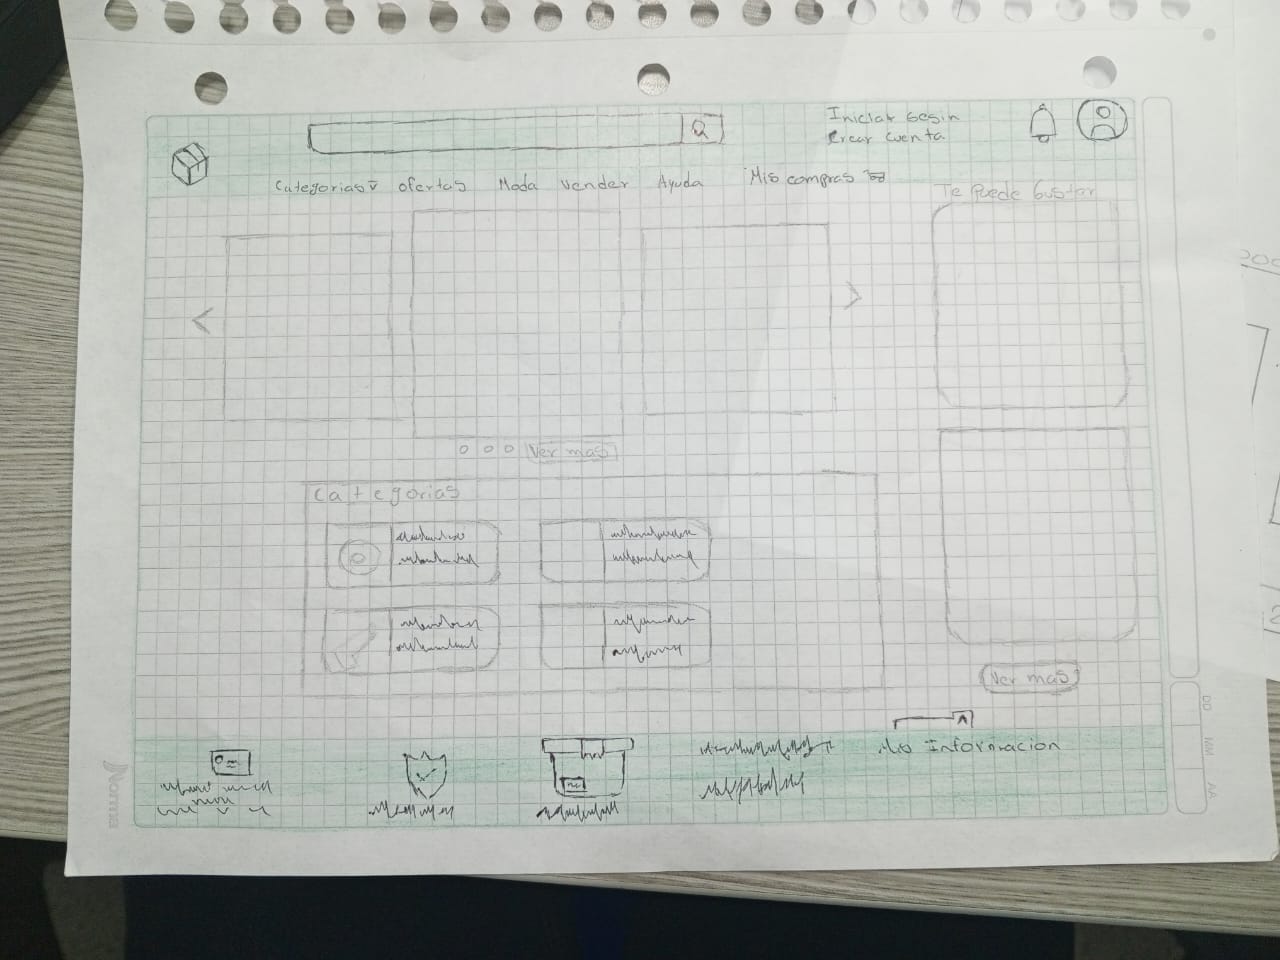 Iniciar sesin
Crear cuenta
Categorias ofertas Moda Vender Ayuda Mis compras
Te Puede Gustar
Ver mas
Categorias
Ver mas
Informacion
Norma
DD
MM
AA